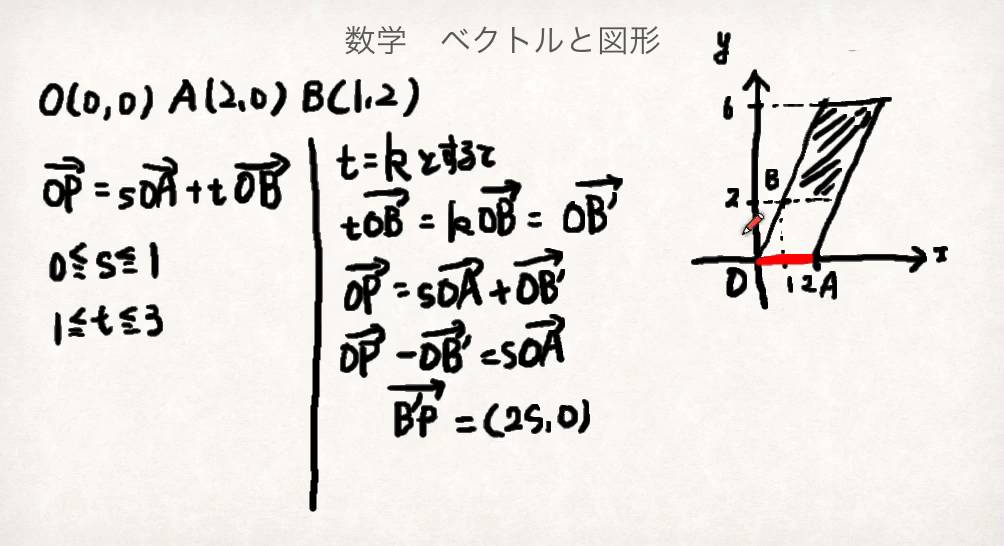 数学 ベクトルと図形
O(0,0) A(2,0) B(1,2)
OP = sOA + tOB
0≦s≦1
1≦t≦3
t=kとすると
tOB = kOB = OB'
OP = sOA + OB'
OP - OB' = sOA
B'P = (2s,0)
y
6
B
2
x
O
1 2 A